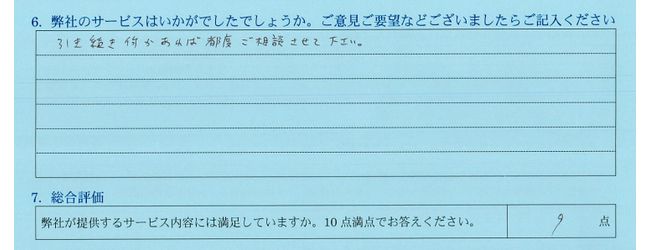 6. 弊社のサービスはいかがでしたでしょうか。ご意見ご要望などございましたらご記入ください
引き続き何かあれば都度ご相談させて下さい。
7. 総合評価
弊社が提供するサービス内容には満足していますか。10点満点でお答えください。 9 点